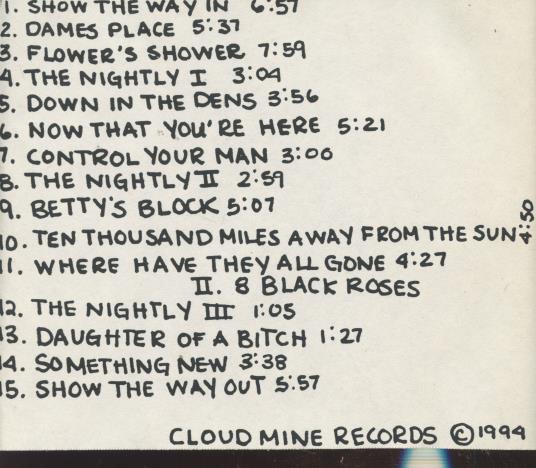 1. SHOW THE WAY IN 6:57
2. DAMES PLACE 5:37
3. FLOWER'S SHOWER 7:59
4. THE NIGHTLY I 3:04
5. DOWN IN THE DENS 3:56
6. NOW THAT YOU'RE HERE 5:21
7. CONTROL YOUR MAN 3:06
8. THE NIGHTLY II 2:59
9. BETTY'S BLOCK 5:07
10. TEN THOUSAND MILES AWAY FROM THE SUN 4:50
11. WHERE HAVE THEY ALL GONE 4:27
II. 8 BLACK ROSES
12. THE NIGHTLY III 1:05
13. DAUGHTER OF A BITCH 1:27
14. SOMETHING NEW 3:38
15. SHOW THE WAY OUT 5:57
CLOUD MINE RECORDS ©1994